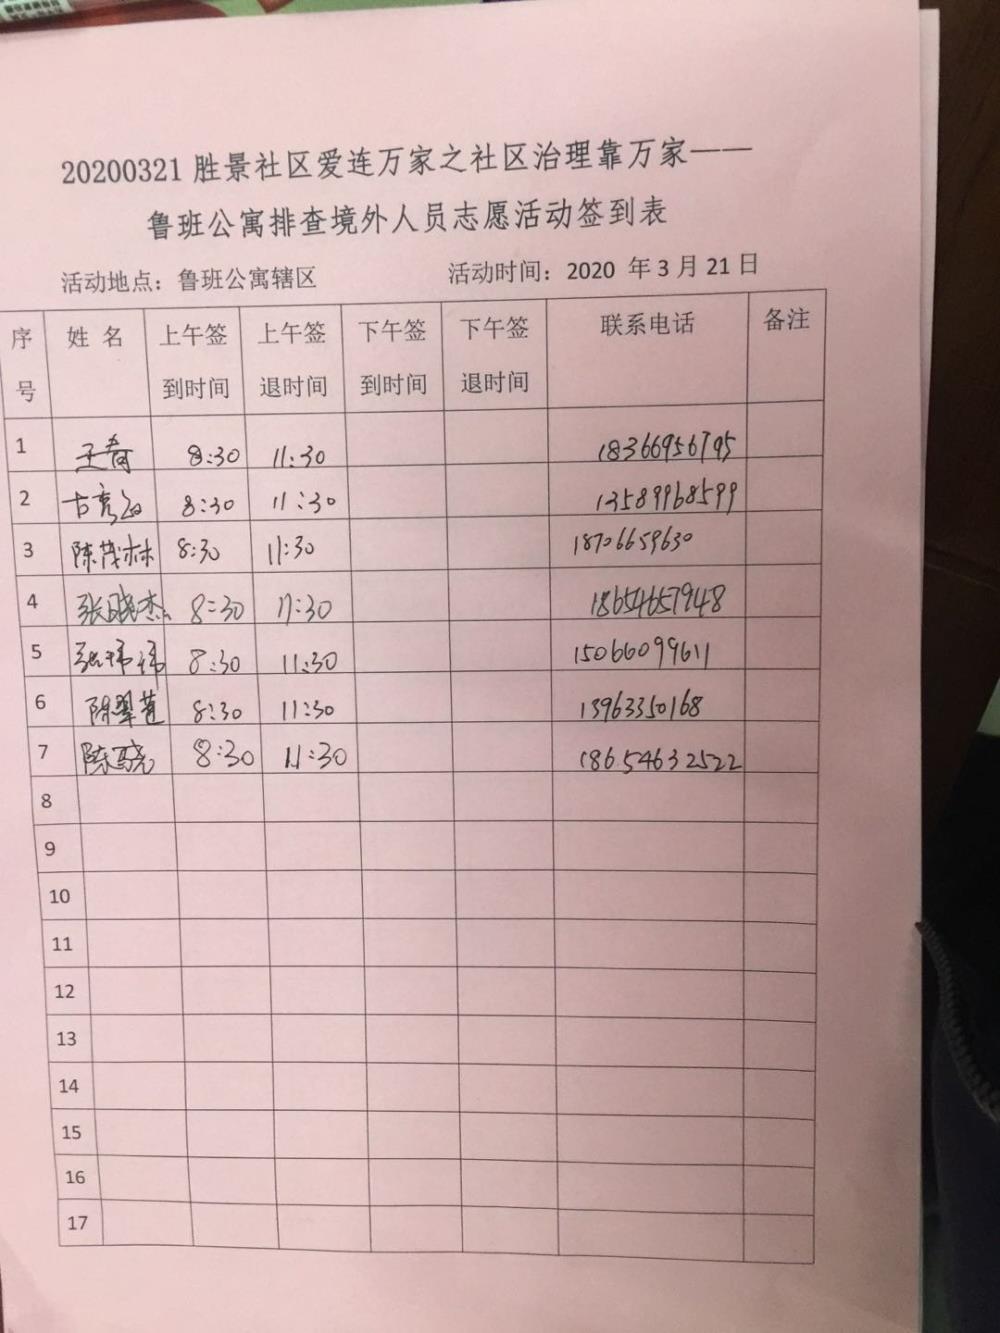 20200321 胜景社区爱连万家之社区治理靠万家——
鲁班公寓排查境外人员志愿活动签到表
活动地点：鲁班公寓辖区 活动时间：2020 年 3 月 21 日
序号 姓 名 上午签到时间 上午签退时间 下午签到时间 下午签退时间 联系电话 备注
1 王春 8:30 11:30 18366956795
2 8:30 11:30 13589968599
3 陈茂林 8:30 11:30 18706659630
4 张晓杰 8:30 11:30 18654657948
5 张祎祎 8:30 11:30 15066099611
6 陈翠莲 8:30 11:30 13963350168
7 陈骁 8:30 11:30 18654632522
8
9
10
11
12
13
14
15
16
17